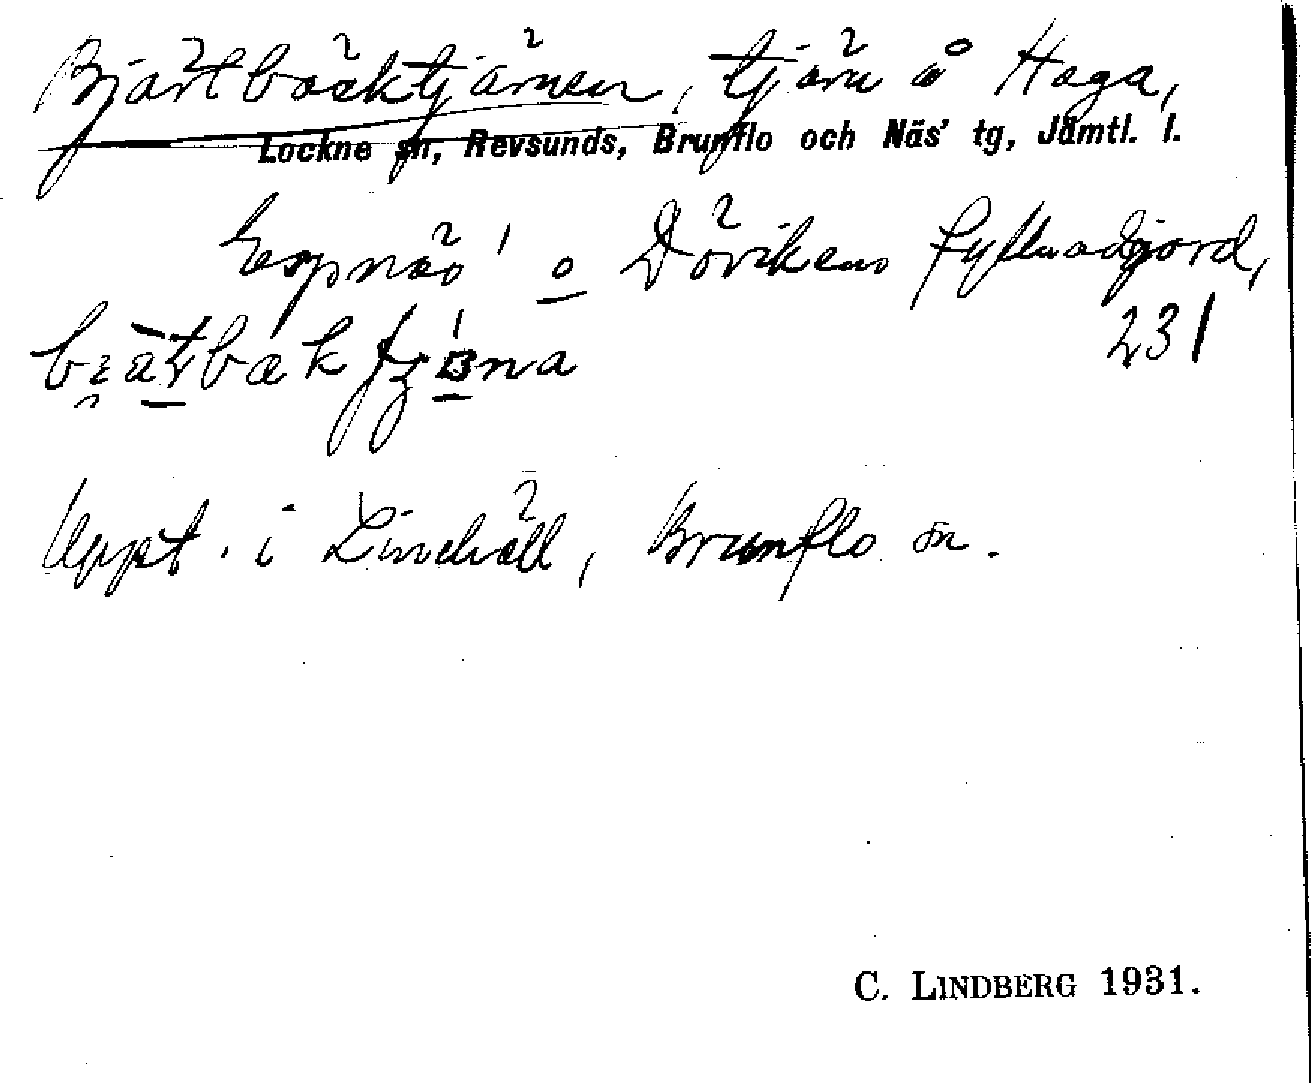 Bjärtbäcktjärnen, tjärn å Haga,
Lockne sn, Revsunds, Brunflo och Näs' tg, Jämtl. l.
Espnäs' o Dövikens fyllnadsjord,
231
Uppt. i Lindhäll, Brunflo sn.
C. LINDBERG 1931.